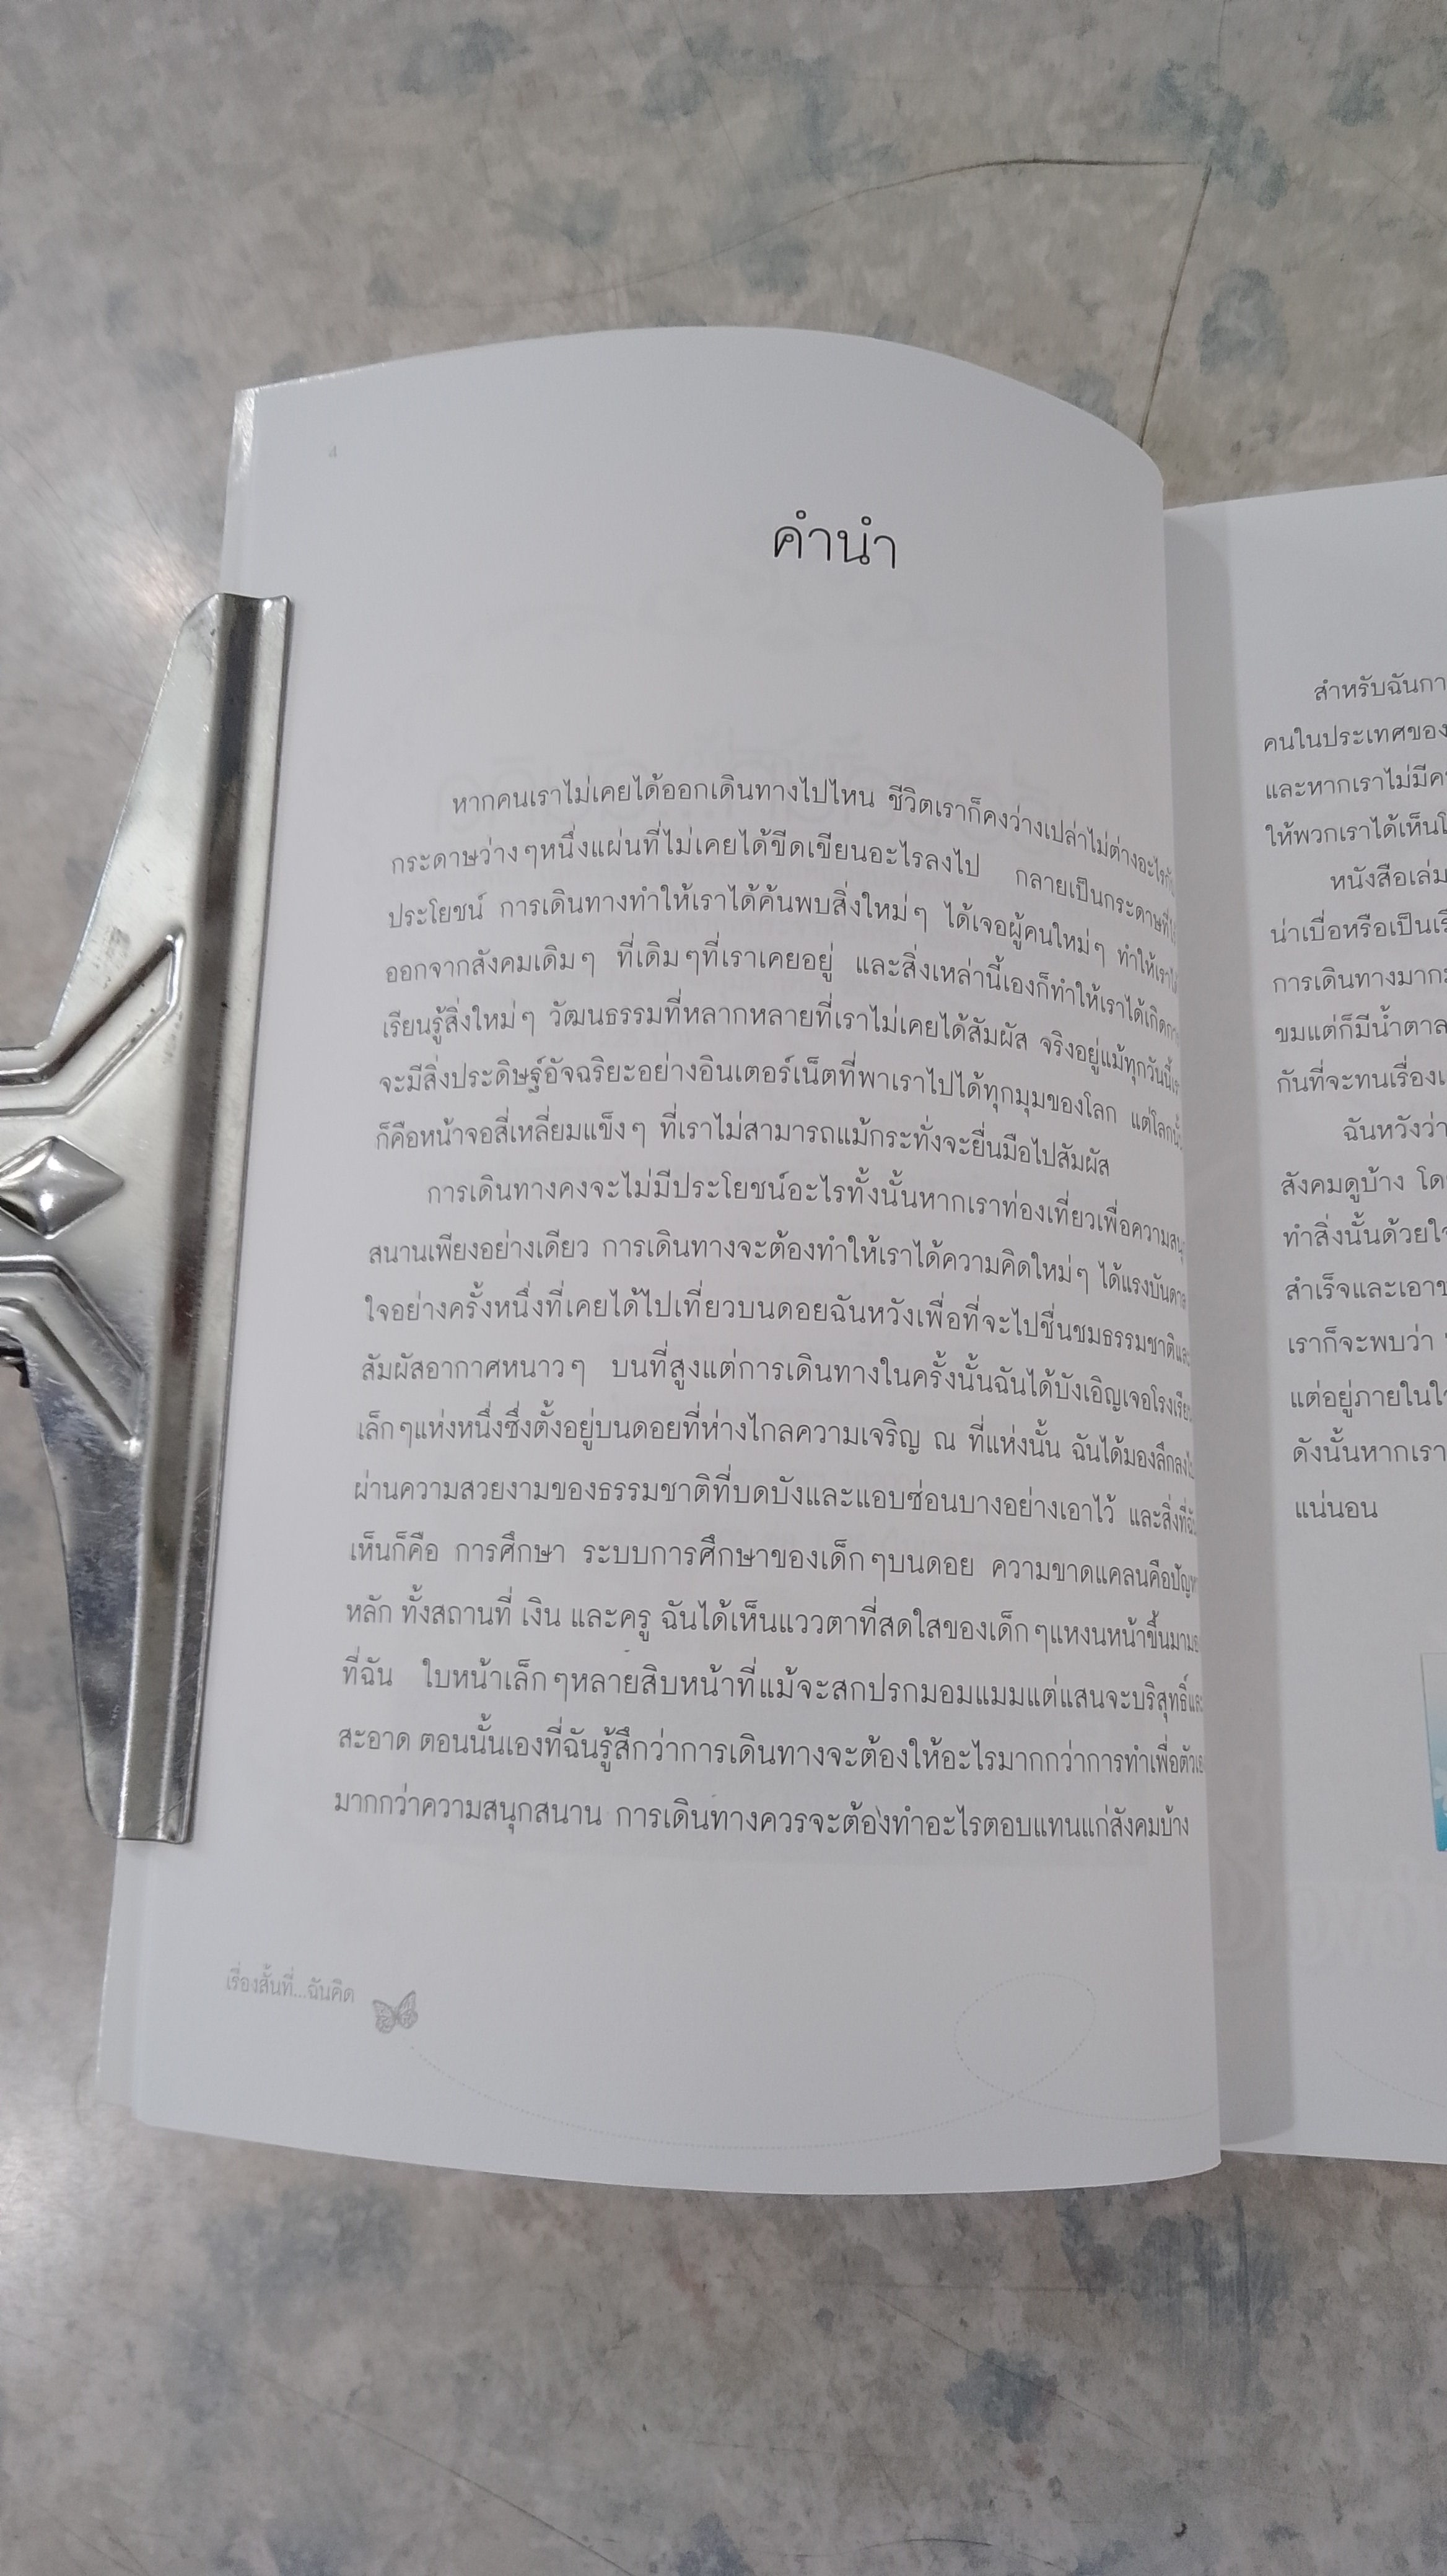 4
คำนำ
หากคนเราไม่เคยได้ออกเดินทางไปไหน ชีวิตเราก็คงว่างเปล่าไม่ต่างอะไร
กระดาษว่างๆหนึ่งแผ่นที่ไม่เคยได้ขีดเขียนอะไรลงไป กลายเป็นกระดาษที่
ประโยชน์ การเดินทางทำให้เราได้ค้นพบสิ่งใหม่ๆ ได้เจอผู้คนใหม่ๆ ทำให้เรา
ออกจากสังคมเดิมๆ ที่เดิมๆที่เราเคยอยู่ และสิ่งเหล่านี้เองก็ทำให้เราได้เกิด
เรียนรู้สิ่งใหม่ๆ วัฒนธรรมที่หลากหลายที่เราไม่เคยได้สัมผัส จริงอยู่แม้ทุกวันนี้
จะมีสิ่งประดิษฐ์อัจฉริยะอย่างอินเตอร์เน็ตที่พาเราไปได้ทุกมุมของโลก แต่โลกนั้น
ก็คือหน้าจอสี่เหลี่ยมแข็งๆ ที่เราไม่สามารถแม้กระทั่งจะยื่นมือไปสัมผัส
การเดินทางคงจะไม่มีประโยชน์อะไรทั้งนั้นหากเราท่องเที่ยวเพื่อความสนุก
สนานเพียงอย่างเดียว การเดินทางจะต้องทำให้เราได้ความคิดใหม่ๆ ได้แรงบันดาล
ใจอย่างครั้งหนึ่งที่เคยได้ไปเที่ยวบนดอยฉันหวังเพื่อที่จะไปชื่นชมธรรมชาติและ
สัมผัสอากาศหนาวๆ บนที่สูงแต่การเดินทางในครั้งนั้นฉันได้บังเอิญเจอโรงเรียน
เล็กๆแห่งหนึ่งซึ่งตั้งอยู่บนดอยที่ห่างไกลความเจริญ ณ ที่แห่งนั้น ฉันได้มองลึกลงไป
ผ่านความสวยงามของธรรมชาติที่บดบังและแอบซ่อนบางอย่างเอาไว้ และสิ่งที่ฉัน
เห็นก็คือ การศึกษา ระบบการศึกษาของเด็กๆบนดอย ความขาดแคลนคือปัญหา
หลัก ทั้งสถานที่ เงิน และครู ฉันได้เห็นแววตาที่สดใสของเด็กๆแหงนหน้าขึ้นมามอง
ที่ฉัน ใบหน้าเล็กๆหลายสิบหน้าที่แม้จะสกปรกมอมแมมแต่แสนจะบริสุทธิ์และ
สะอาด ตอนนั้นเองที่ฉันรู้สึกว่าการเดินทางจะต้องให้อะไรมากกว่าการทำเพื่อตัวเอง
มากกว่าความสนุกสนาน การเดินทางควรจะต้องทำอะไรตอบแทนแก่สังคมบ้าง
เรื่องสั้นที่...ฉันคิด
สำหรับฉันกา
คนในประเทศของ
และหากเราไม่มีค
ให้พวกเราได้เห็น
หนังสือเล่ม
น่าเบื่อหรือเป็นเรื
การเดินทางมาก
ขมแต่ก็มีน้ำตาล
กันที่จะทนเรื่อง
ฉันหวังว่า
สังคมดูบ้าง โด
ทำสิ่งนั้นด้วยใจ
สำเร็จและเอาช
เราก็จะพบว่า
แต่อยู่ภายในใ
ดังนั้นหากเรา
แน่นอน